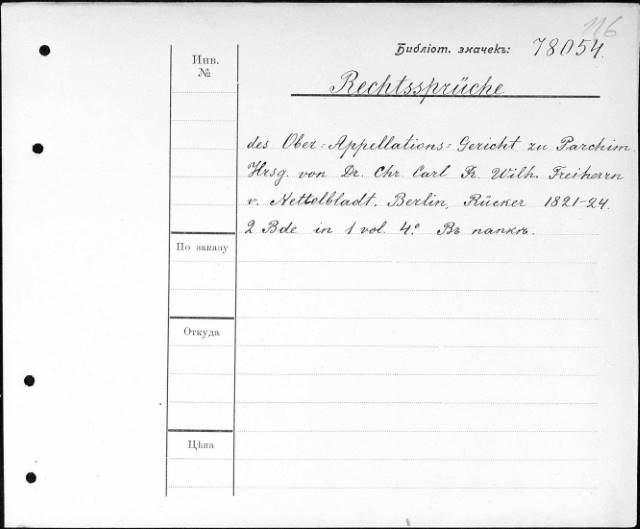 116
Библіот. значекъ: 78054.
Инв.
№
Rechtssprüche
des Ober-Appellations-Gericht zu Parchim.
Hrsg. von Dr. Chr. Carl Fr. Wilh. Freiherrn
v. Nettelbladt. Berlin, Rücker 1821-24.
2 Bde in 1 vol. 4.° Въ папкѣ.
По заказу
Откуда
Цѣна